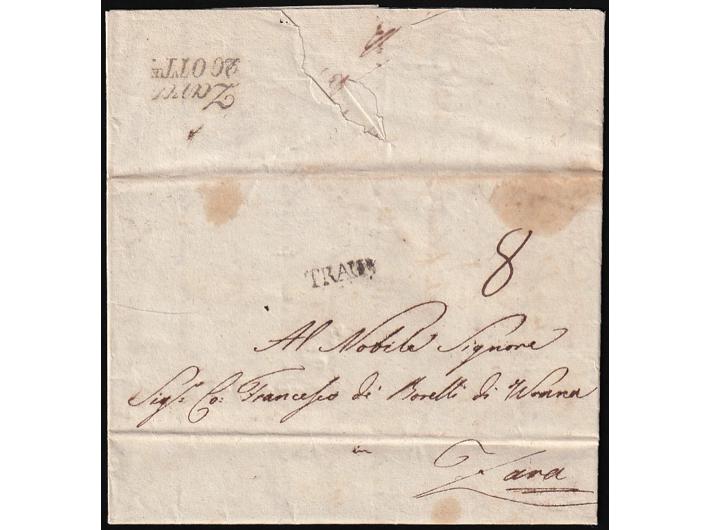 Zara
26 OTT.
TRAU
8
Al Nobile Signore
Sig.r Co: Francesco di Borelli di Wrana
in
Zara